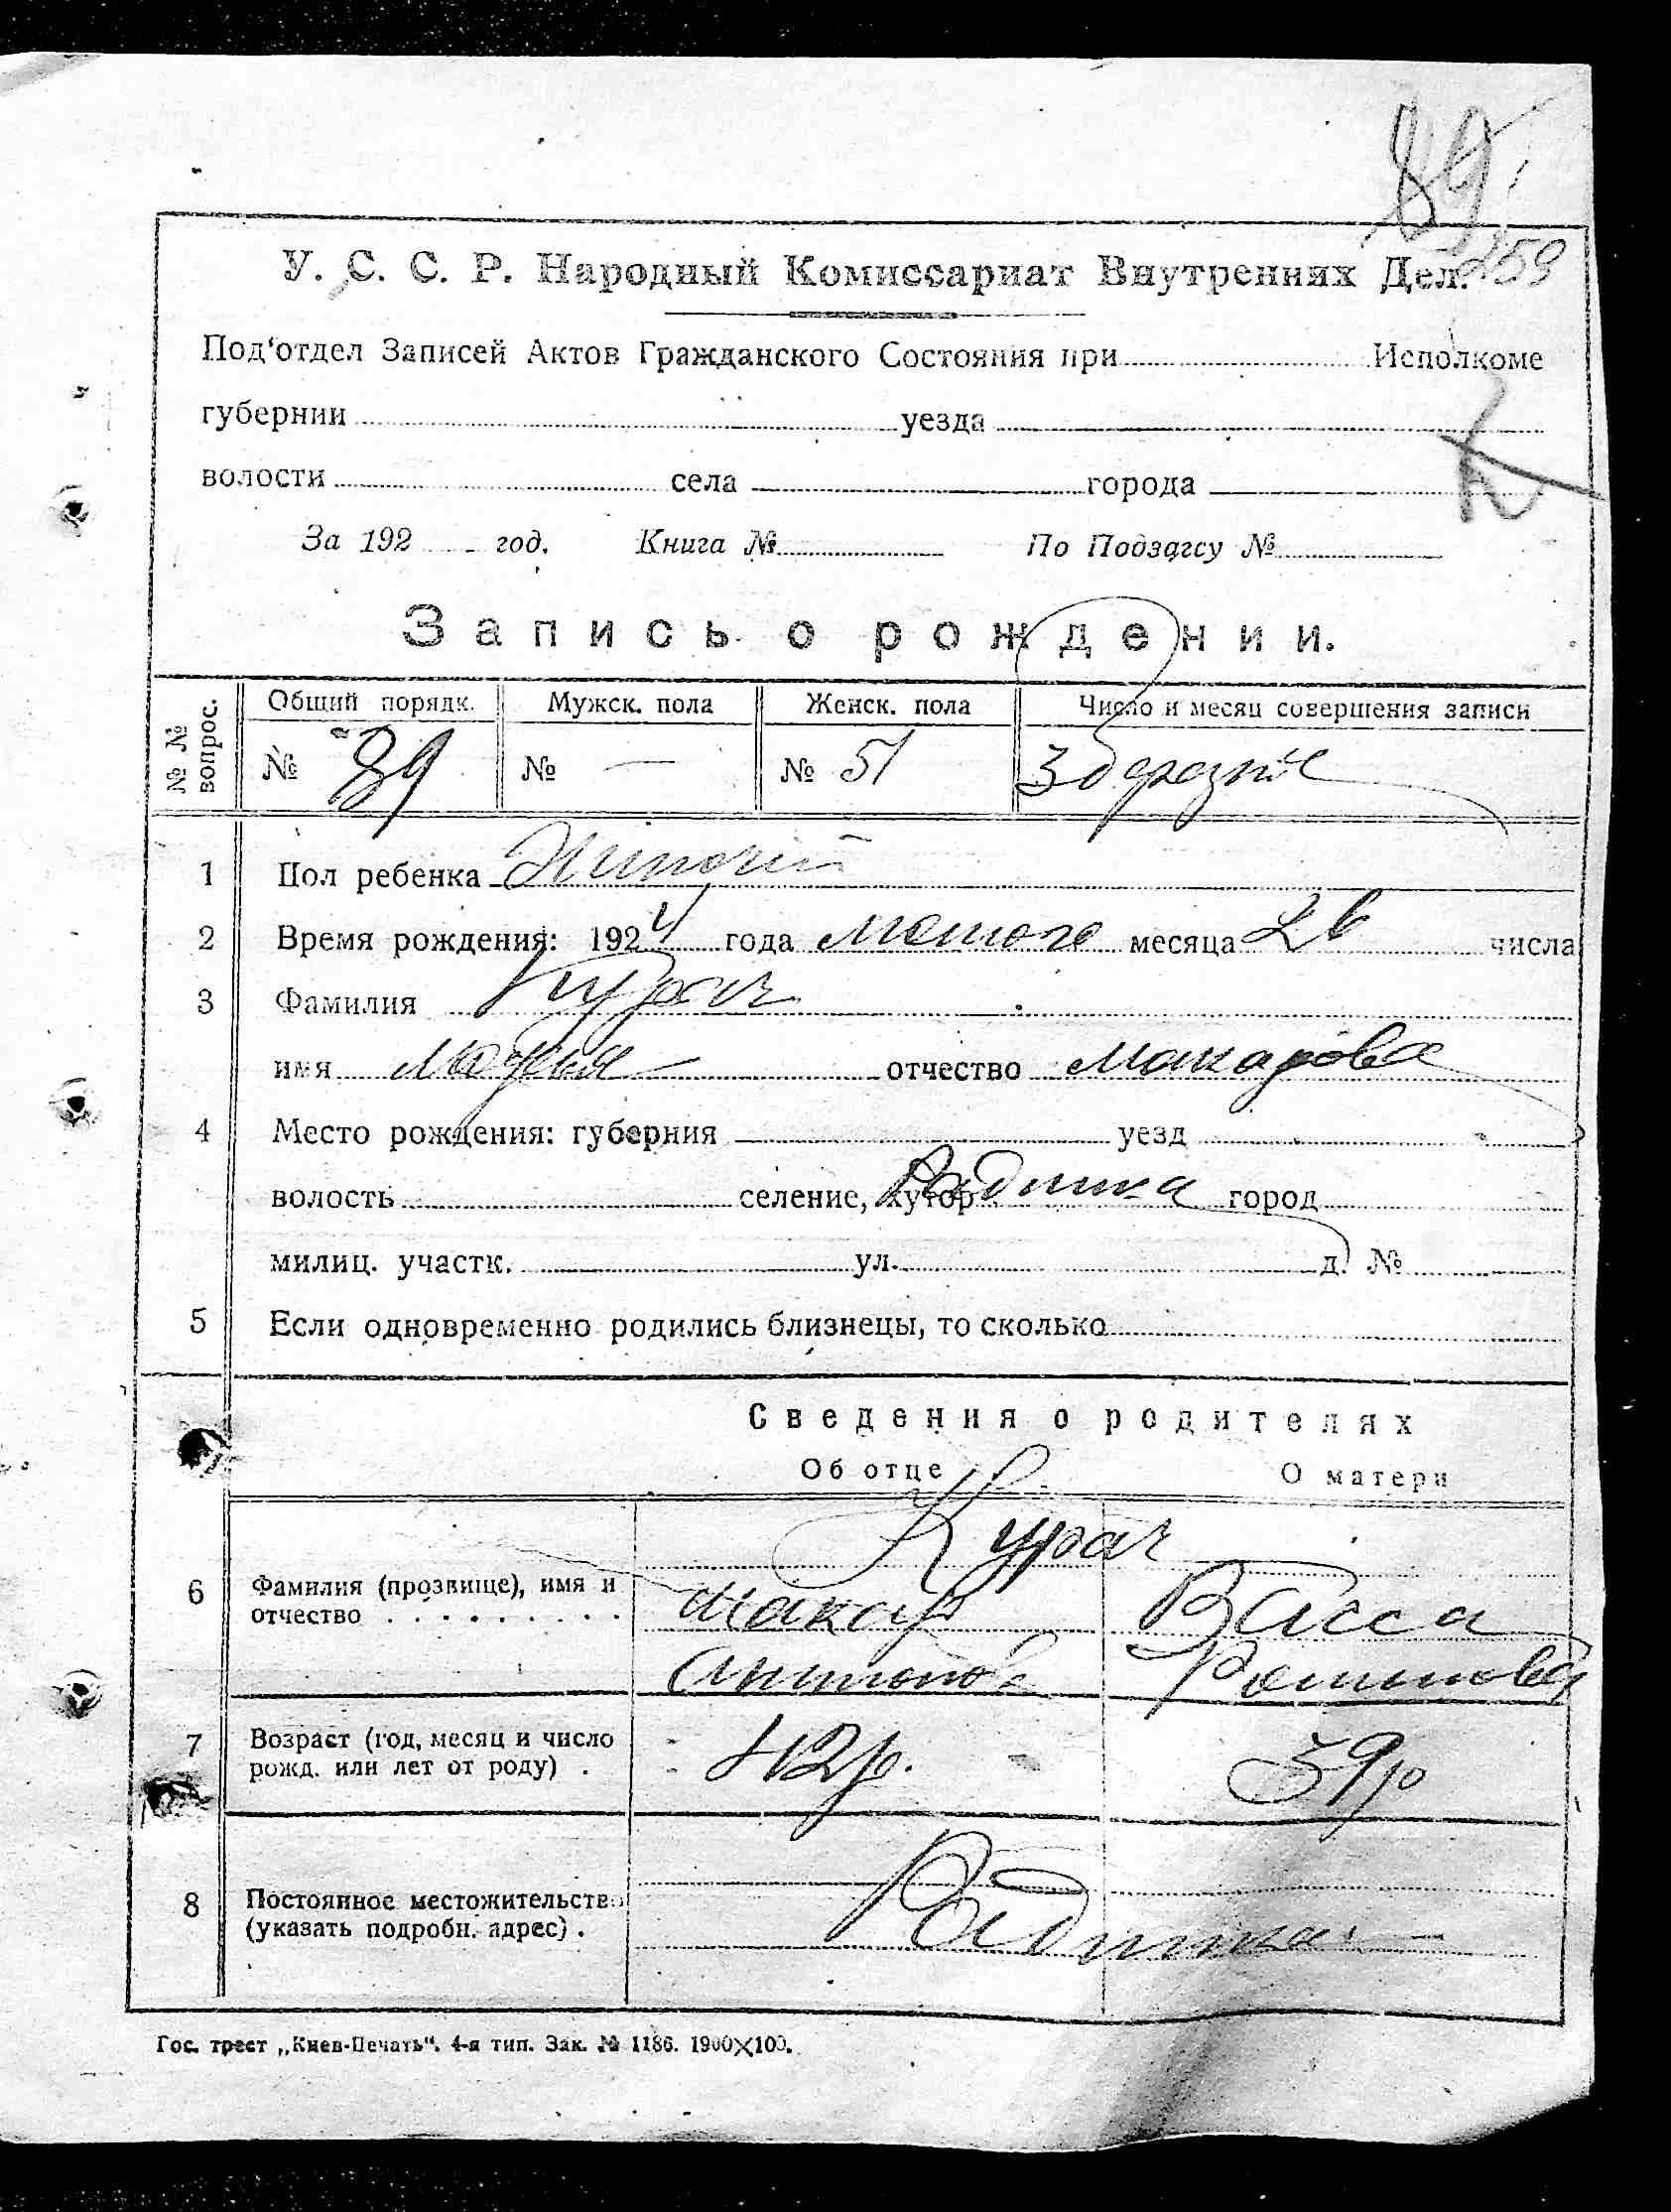 89
259
У. С. С. Р. Народный Комиссариат Внутренних Дел.
Под'отдел Записей Актов Гражданского Состояния при Исполкоме
губернии уезда
К
волости села города
За 192 год. Книга № По Подзагсу №
Запись о рождении.
№ № вопрос.
Общий порядк. Мужск. пола Женск. пола Число и месяц совершения записи
№ 89 № — № 51 3 березня
1 Пол ребенка Жіночій
2 Время рождения: 1924 года Лютого месяца 26 числа
3 Фамилия Курач
имя Марья отчество Макарова
4 Место рождения: губерния уезд
волость селение, хутор Радинка город
милиц. участк. ул. д. №
5 Если одновременно родились близнецы, то сколько
Сведения о родителях
Об отце О матери
Курач
6 Фамилия (прозвище), имя и отчество Макар Васса
Антонов
7 Возраст (год, месяц и число рожд. или лет от роду) 42 р. 39 р
8 Постоянное местожительство (указать подробн. адрес) Радинка
Гос. трест „Киев-Печать“. 4-я тип. Зак. № 1186. 1900×100.